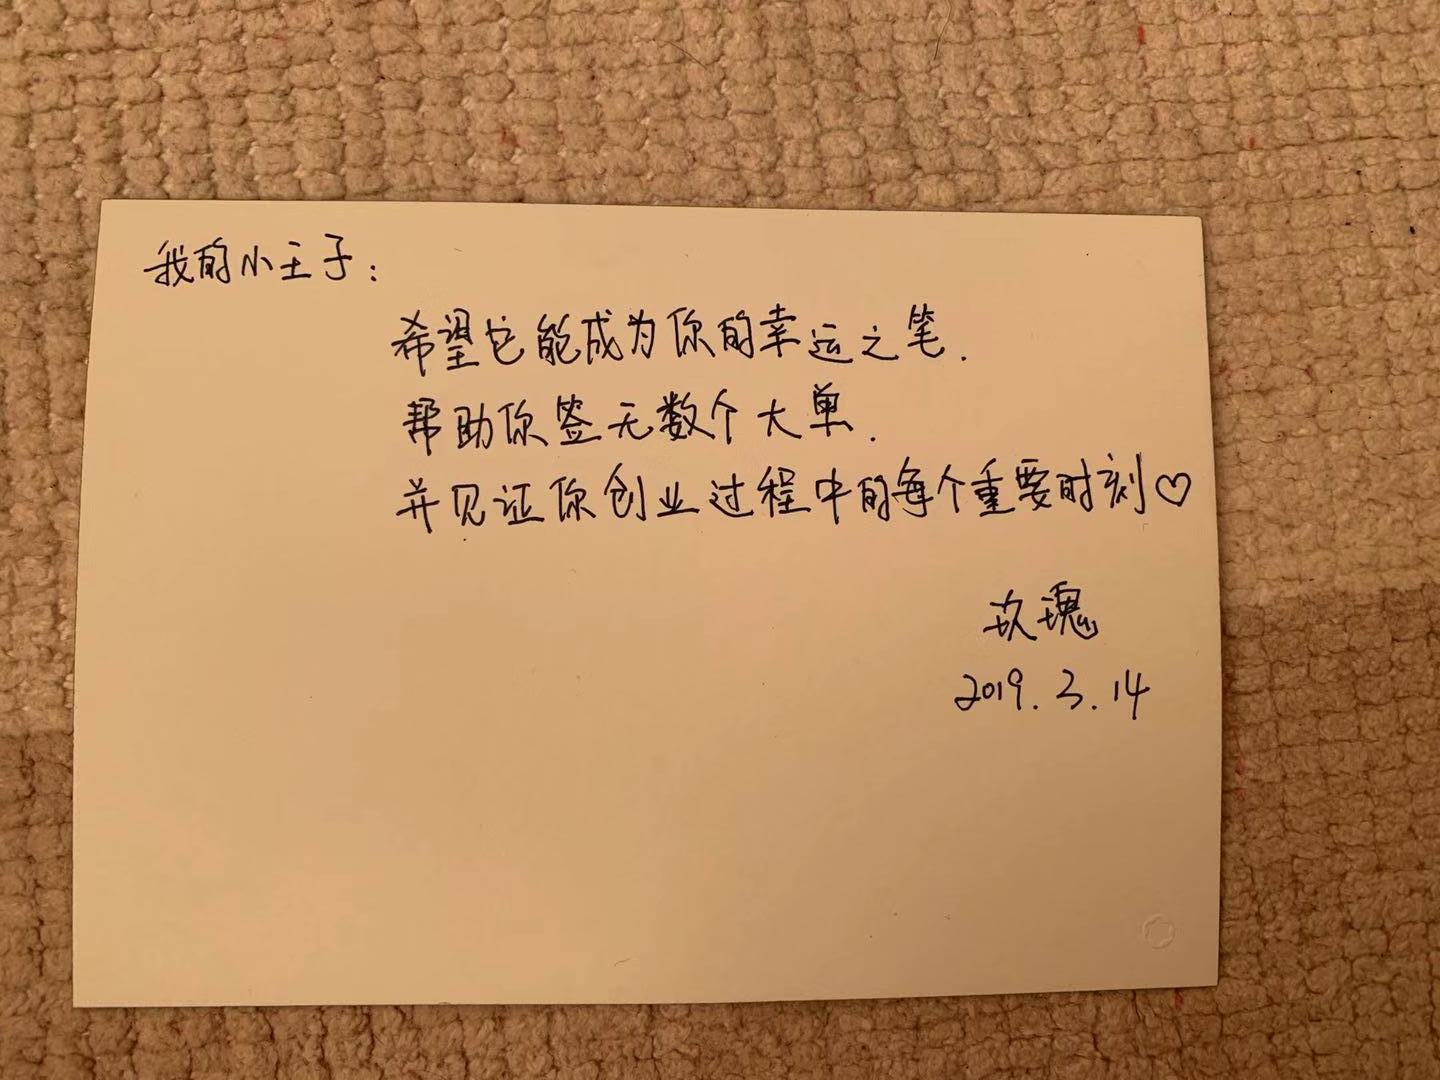 我的小王子：
希望它能成为你的幸运之笔.
帮助你签无数个大单.
并见证你创业过程中的每个重要时刻♡
玫瑰
2019.3.14